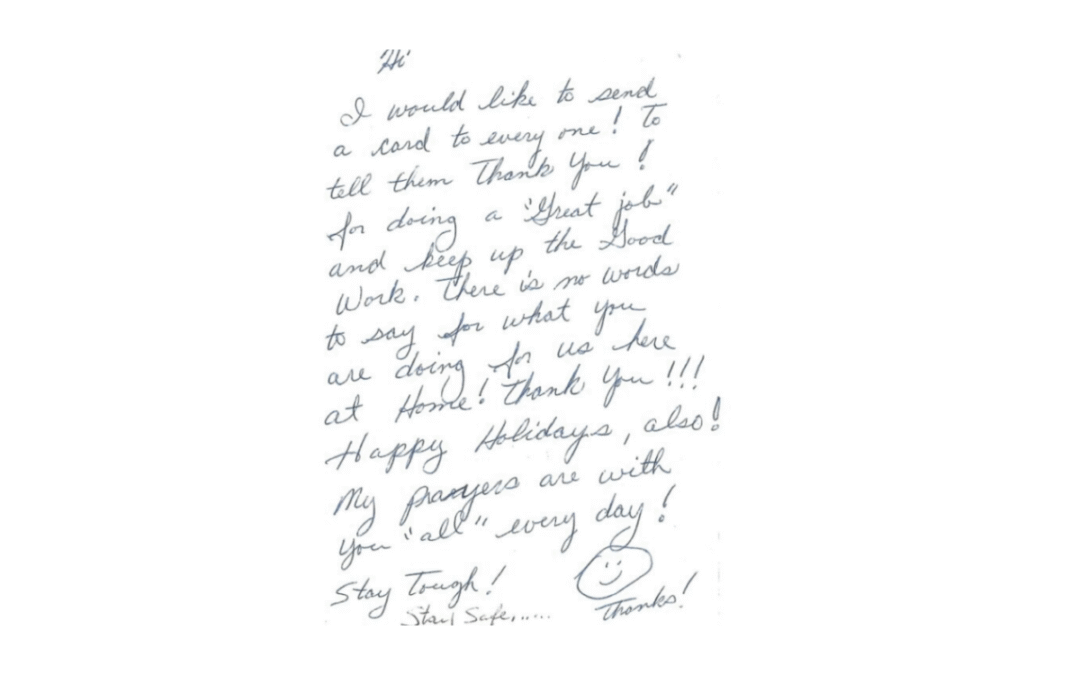 Hi
I would like to send
a card to every one! To
tell them Thank You!
for doing a "Great job"
and keep up the Good
Work. There is no words
to say for what you
are doing for us here
at Home! Thank You!!!
Happy Holidays, also!
My prayers are with
you "all" every day!
Stay Tough!
Stay Safe,..... Thanks!